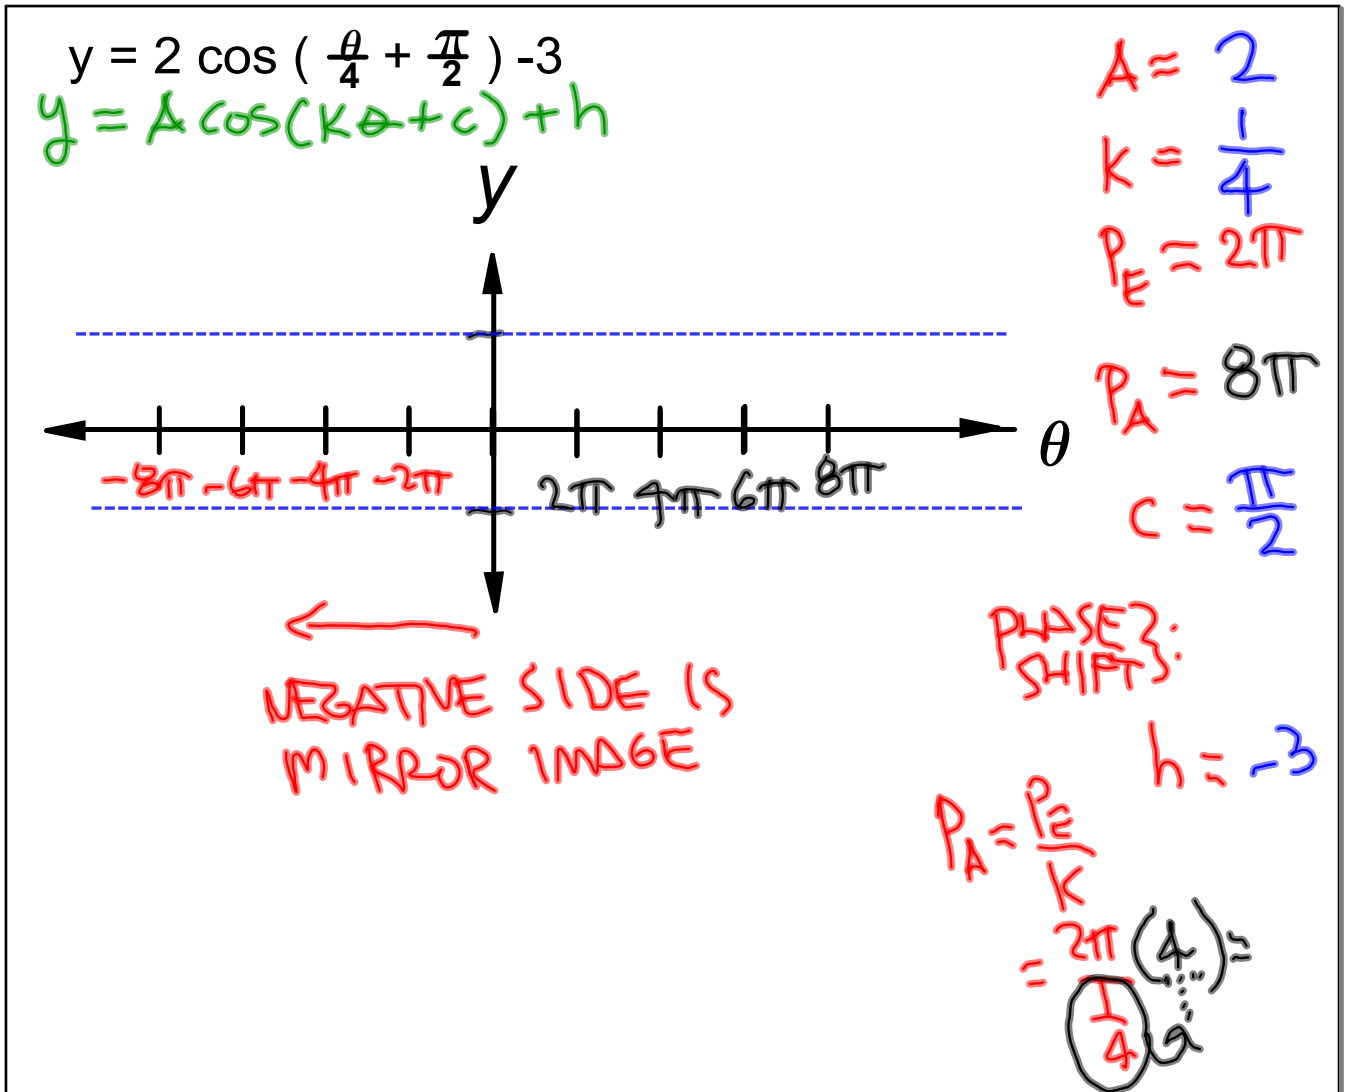 y = 2 cos ( θ/4 + π/2 ) -3
y = A cos(kθ+c) + h
y
θ
-8π -6π -4π -2π 2π 4π 6π 8π
NEGATIVE SIDE IS
MIRROR IMAGE
A = 2
K = 1/4
P_E = 2π
P_A = 8π
c = π/2
PHASE
SHIFT}:
h = -3
P_A = P_E/K
= 2π/(1/4) (4) =